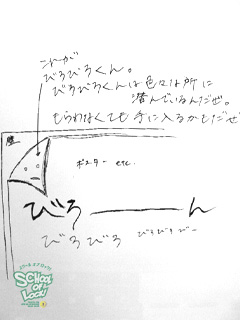 これが
びろびろくん。
びろびろくんは色々な所に
潜んでいるんだぜ。
もらわなくても手に入るかもだぜ
壁
ポスター etc.
びろーーん
びろびろ びびびびー
SCHOOL OF LOCK!